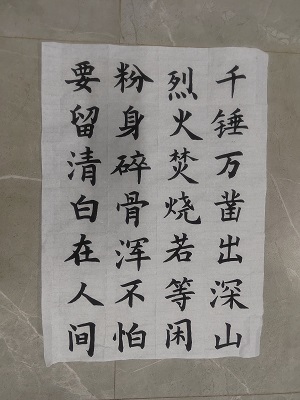 千锤万凿出深山
烈火焚烧若等闲
粉身碎骨浑不怕
要留清白在人间